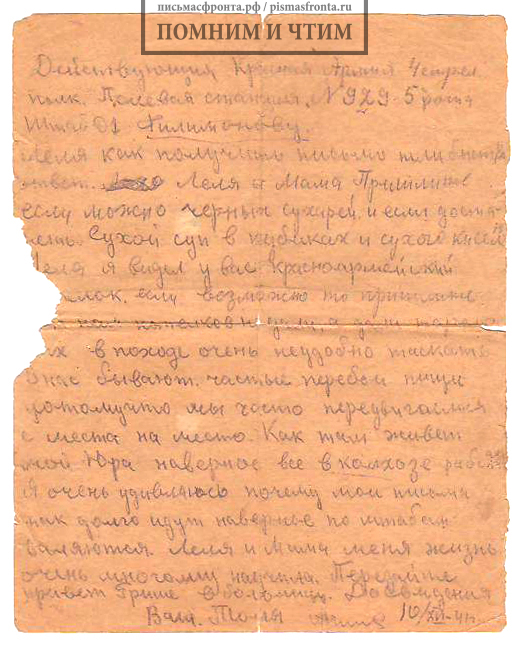 письмасфронта.рф / pismasfronta.ru
ПОМНИМ И ЧТИМ
Действующия Красная Армия
полк. Полевая станция. N 929 5 рота
Филимонову.
Леля как получишь письмо
ответ. Леля и Мама Пришлите
если можно черных сухарей и если
Сухой суп в кубиках и сухой кисель
я видел у вас Красноармейский
если возможно то пришлите

в походе очень неудобно таскать
У нас бывают частые перебои пищи
потомучто мы часто передвигаемся
с места на место. Как там живет
мой Юра наверное все в колхозе
Я очень удивляюсь почему мои письма
так долго идут наверное по штабам
валяются. Леля и Мама меня жизнь
очень многому научила. Передайте
привет Грише в больницу. Досвидания
Ваш. Толя 10/XII-41